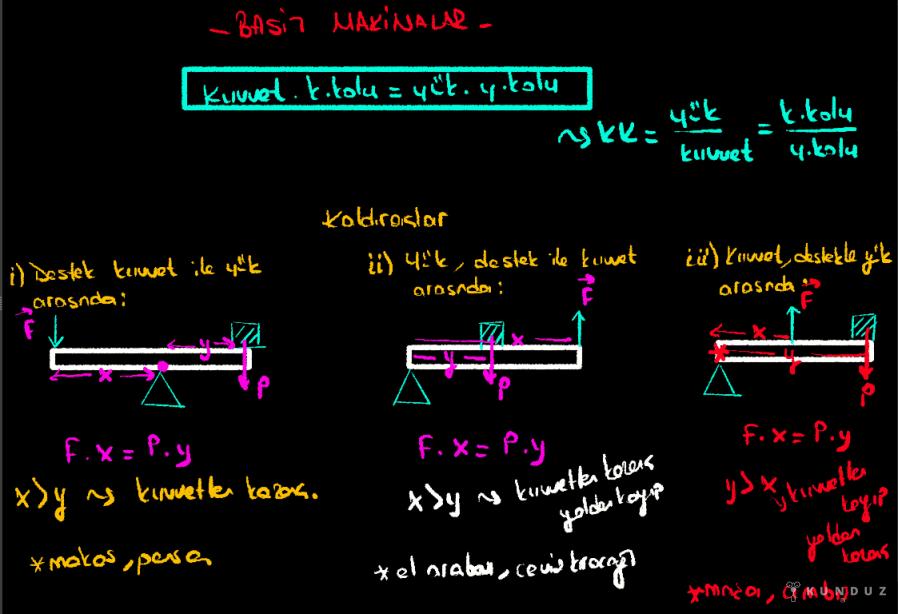 - BASİT MAKİNALAR -
Kuvvet . k.kolu = yük . y.kolu
⇝ KK = yük / kuvvet = k.kolu / y.kolu
Kaldıraçlar
i) Destek kuvvet ile yük
arasında:
F
y
x
P
F . x = P . y
x > y ⇝ kuvvetten kazanç.
* makas, pense
ii) Yük, destek ile kuvvet
arasında:
F
x
y
P
F . x = P . y
x > y ⇝ kuvvetten kazanç
yoldan kayıp
* el arabası, ceviz kıracağı
iii) Kuvvet, destekle yük
arasında:
F
x
y
P
F . x = P . y
y > x, kuvvetten
kayıp
yoldan
kazanç
* maşa, cımbız
KUNDUZ